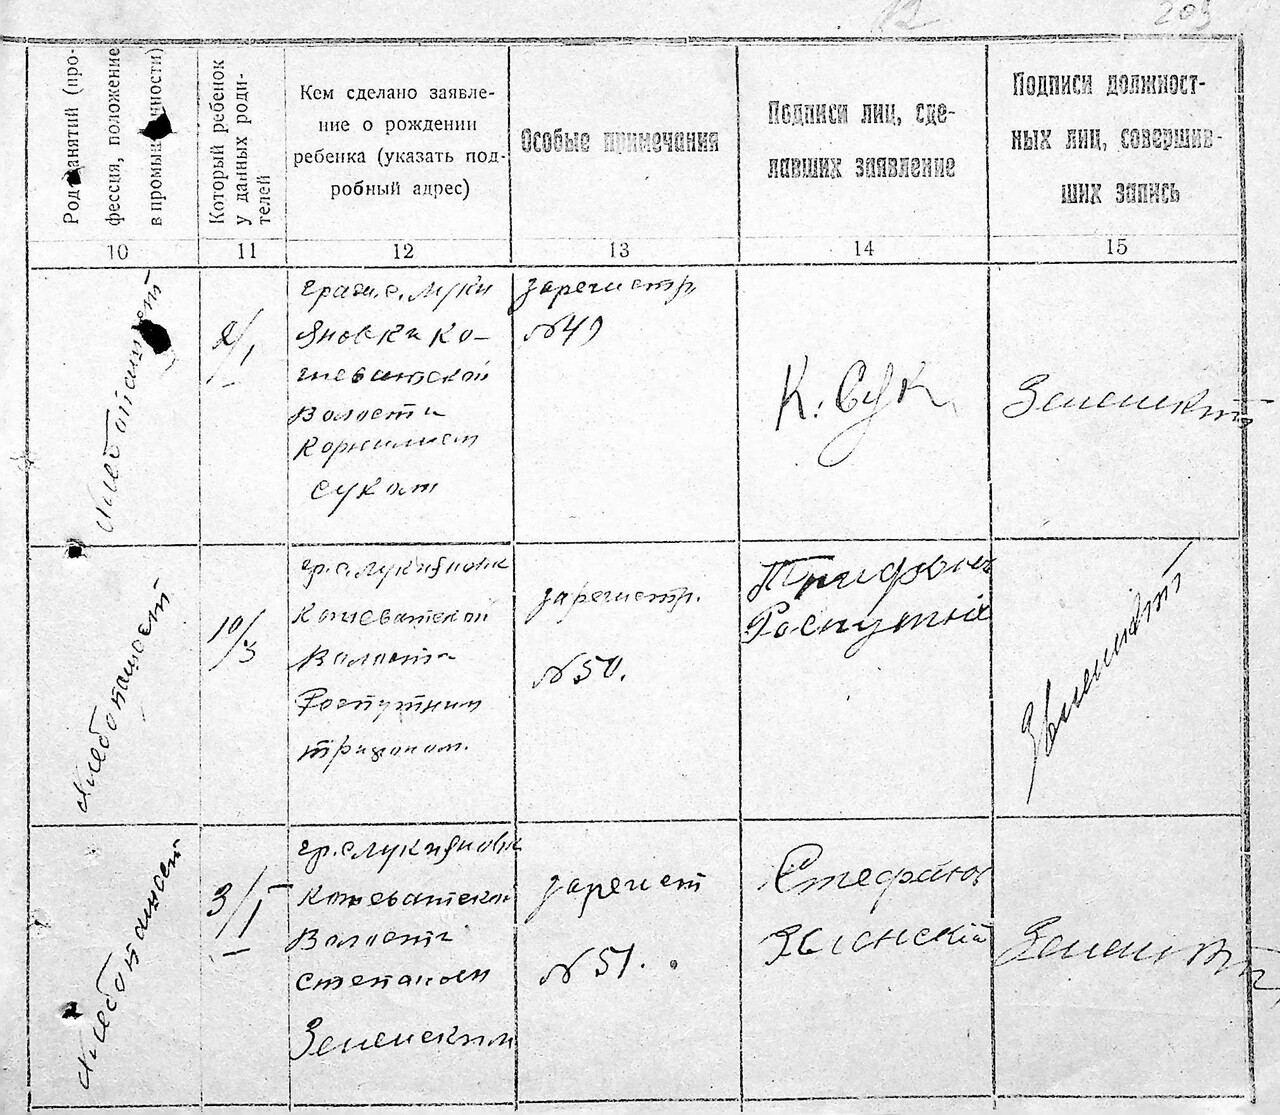 203
Род занятий (про-
фессия, положение
в промышленности)
Который ребенок
у данных роди-
телей
Кем сделано заявле-
ние о рождении
ребенка (указать под-
робный адрес)
Особые примечания
Подписи лиц, сде-
лавших заявление
Подписи должност-
ных лиц, совершив-
ших запись
10
11
12
13
14
15
Хлебопашест
2/1
гражд. с. Луки
Яновки Ко-
шеватской
Волости
Корнилием
Суком
зарегистр.
№49
К. Сук
Зеленский
Хлебопашест
10/5
гр. с. Лукияновк
Кошеватской
Волости
Роспутним
Трифоном.
зарегистр.
№50.
Трифон
Роспутний
Зеленский
Хлебопашест
3/1
гр. с. Лукияновк
Кошеватской
Волости
Степаном
Зеленским
зарегист
№51.
Стефанов
Зеленский
Зеленский